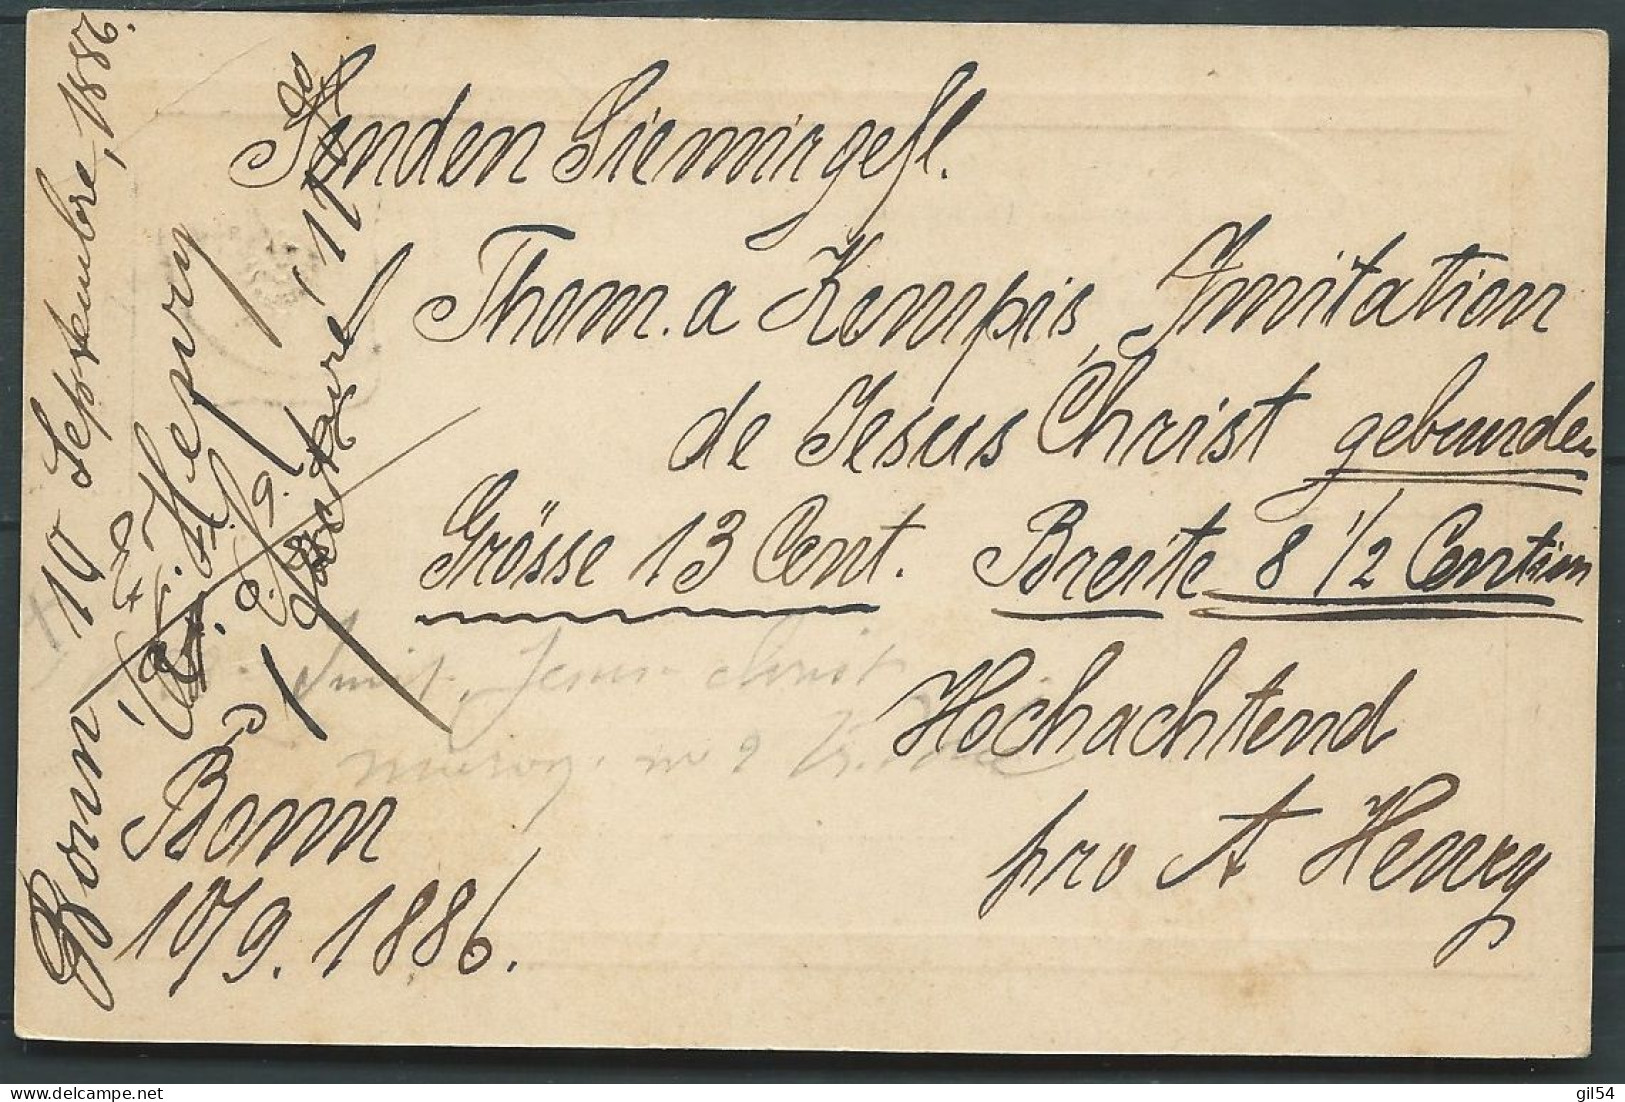 Senden Sie mir gefl.
Thom. a Kempis, Imitation
de Jesus Christ gebunden
Grösse 13 Cent. Breite 8 1/2 Centim
Hochachtend
pro A Henry
Bonn
10/9. 1886.
Bonn 10 Septembre, 1886.
Henry
Imit. Jesus Christ
gil54